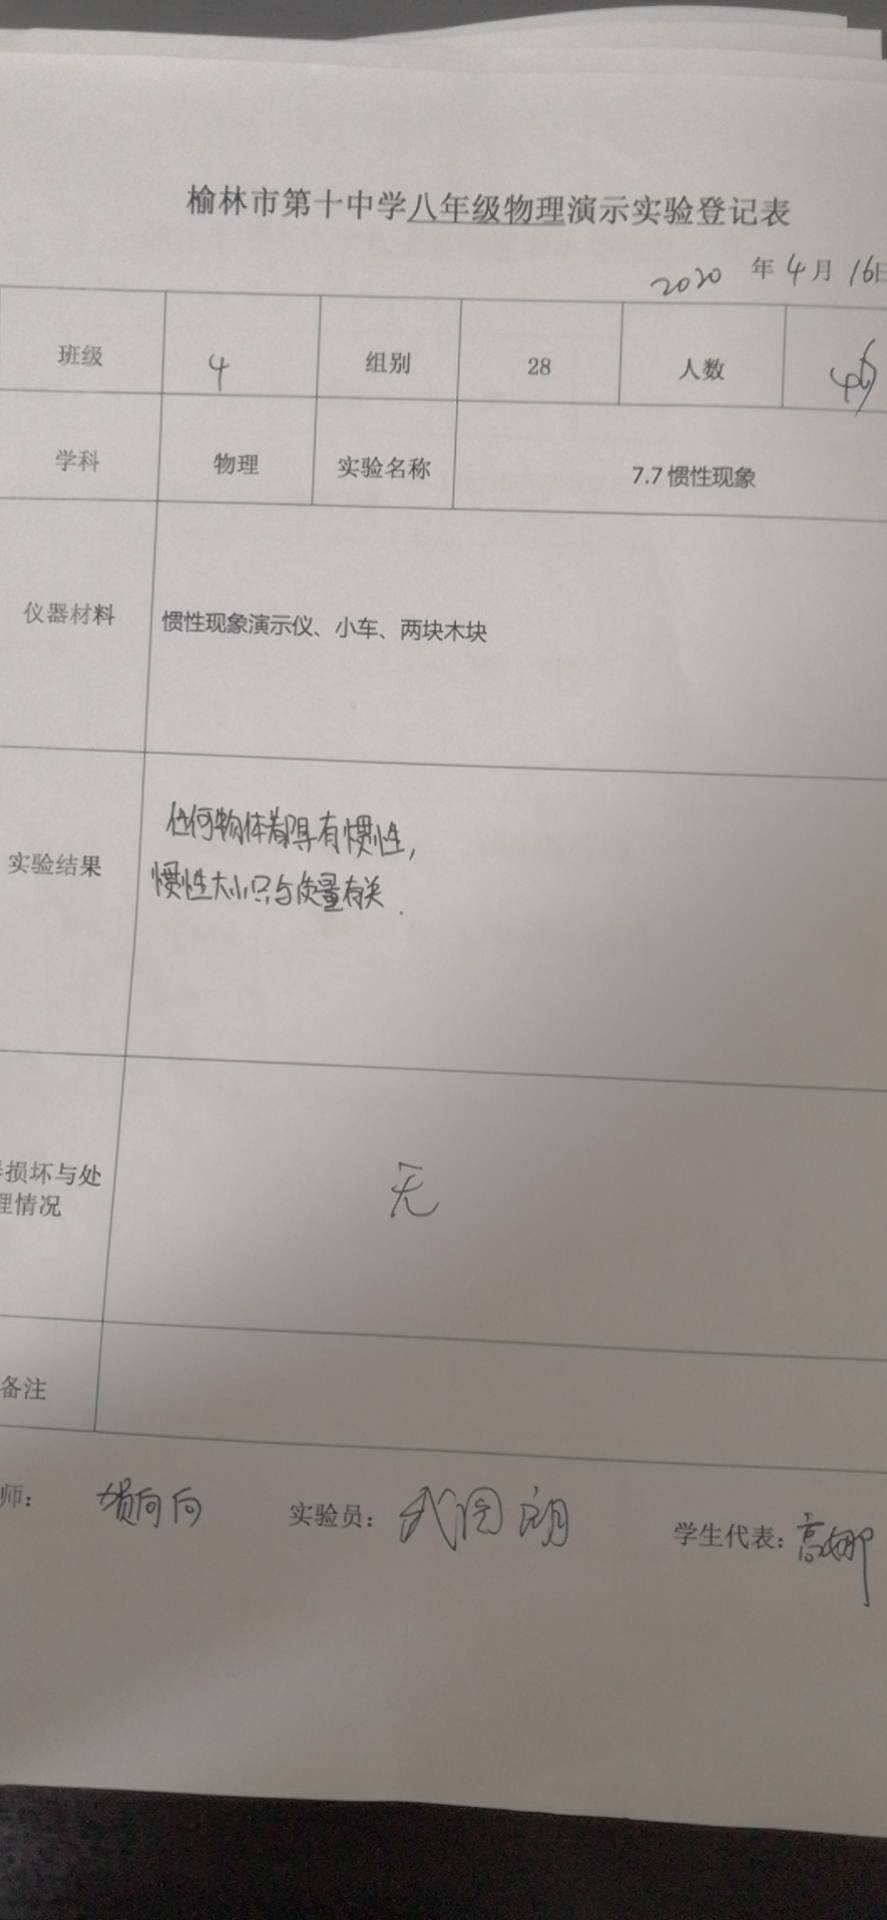 榆林市第十中学八年级物理演示实验登记表
2020 年 4 月 16日
班级 4 组别 28 人数
学科 物理 实验名称 7.7 惯性现象
仪器材料 惯性现象演示仪、小车、两块木块
任何物体都具有惯性,
实验结果
惯性大小只与质量有关.
损坏与处
理情况
无
备注
师: 实验员: 学生代表: 高娜